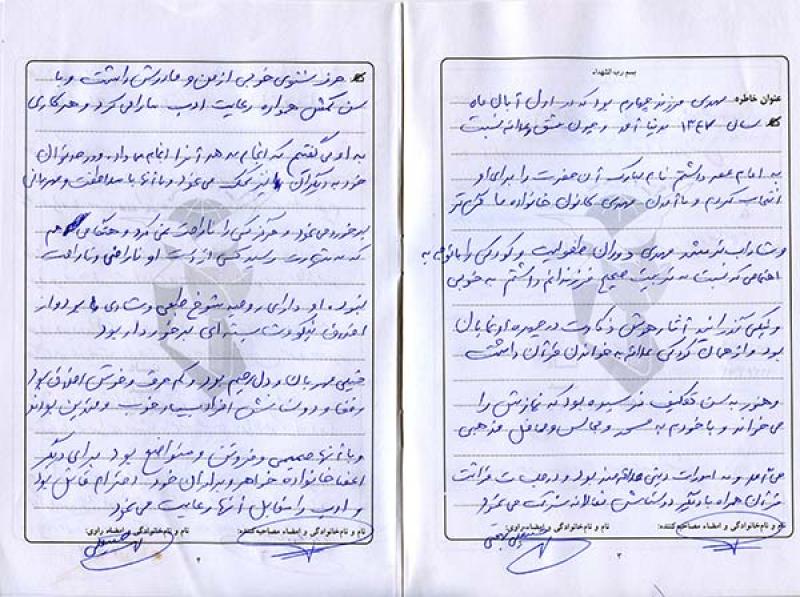 بسم رب الشهداء
عنوان خاطره مهدی فرزند چهارم بود که در اول آبان ماه
سال ۱۳۴۷ بدنیا آمد و چون عشق و علاقه نسبت
به امام عصر داشتم نام مبارک آن حضرت را برای او
انتخاب کردیم و با آمدن مهدی کانون خانواده ما گرم‌تر
و شاداب‌تر شد مهدی دوران طفولیت و کودکی را با توجه به
اهتمامی که نسبت به تربیت صحیح فرزندانم داشتم به خوبی
و نیکی گذرانید آثار هوش و ذکاوت در چهره او نمایان
بود و از همان کودکی علاقه به خواندن قرآن داشت
و هنوز به سن تکلیف نرسیده بود که نمازش را
می‌خواند و با خودم به مسجد و مجالس و محافل مذهبی
می‌آمد و به امورات دینی علاقمند بود و در جلسات قرائت
قرآن همراه با دیگر دوستانش فعالانه شرکت می‌نمود
نام و نام خانوادگی و امضاء مصاحبه کننده:
نام و نام خانوادگی و امضاء راوی:
۲
حرف شنوی خوبی از من و مادرش داشت و با
سن کمش همواره رعایت ادب ما را می‌کرد و هر کاری
به او می‌گفتیم که انجام بدهد آنرا انجام می‌داد و در حد توان
خود به دیگران نیز کمک می‌نمود و با آنها با ملاطفت و مهربانی
برخورد می‌نمود و هرگز کسی را ناراحت نمی‌کرد و هنگامی هم
که به شهادت رسید کسی از دست او ناراضی و ناراحت
نبود. او دارای روحیه شوخ طبعی و شادی بود و از
اخلاق نیکو و شایسته‌ای برخوردار بود
خیلی مهربان و دل رحیم بود و کم حرف و خوش اخلاق بود
رفقا و دوستانش افراد بسیار خوب و متدین بودند
و با آنها صمیمی و فروتن و متواضع بود برای دیگر
اعضا خانواده خواهر و برادران خود احترام قائل بود
و ادب را مقابل آنها رعایت می‌نمود
نام و نام خانوادگی و امضاء مصاحبه کننده:
نام و نام خانوادگی و امضاء راوی: